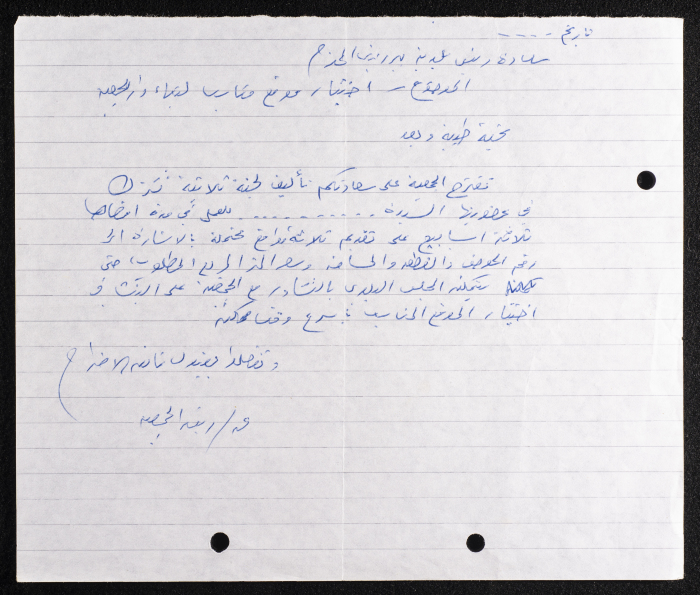 تاريخ . . . . .
سعادة رئيس بلدية بيرزيت المحترم
الموضوع - اختيار موقع مناسب لبناء دار الجمعية
تحية طيبة وبعد
تقترح الجمعية على سعادتكم تأليف لجنة ثلاثية تشترك
في عضويتها السيدة . . . . . . . . . . . للعمل في مدة اقصاها
ثلاثة اسابيع على تقديم ثلاثة مواقع محتملة بالاشارة الى
رقم الحوض والقطعة والمساحة وسعر المتر المربع المطلوب، حتى
يتمكن المجلس البلدي بالتشاور مع الجمعية على البث في
اختيار الموقع المناسب باسرع وقت ممكن
وتفضلوا بقبول فائق الاحترام
عن / رئيسة الجمعية